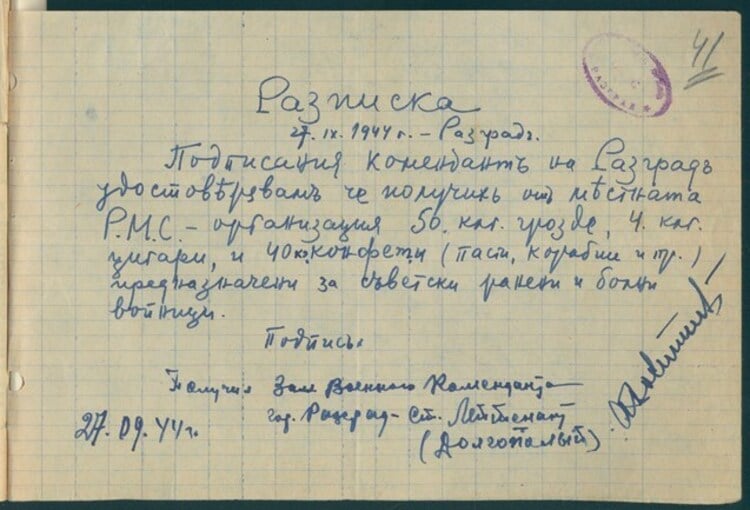 41
РАЗГРАД
Разписка
27. IX. 1944 г. – Разградъ.
Подписания комендантъ на Разградъ
удостовѣрявамъ че получихъ отъ мѣстната
Р.М.С. – организация 50. кгг. грозде, 4. кгг.
цигари, и 40 кг. конфети (пасти, корабии и пр.)
предназначени за съветски ранени и болни
войници.
Подпись:
Получил Зам Военного Коменданта
гор. Разград – Ст. Лейтенант
27. 09. 44 г.
(Долгопалый)